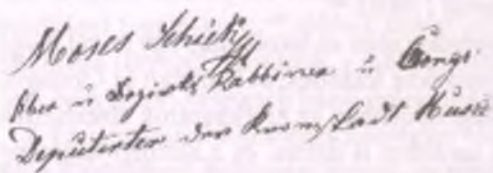 Moses Schick
Ober u Bezirks Rabbiner u Congr
Deputirter der Kronstadt Huszt